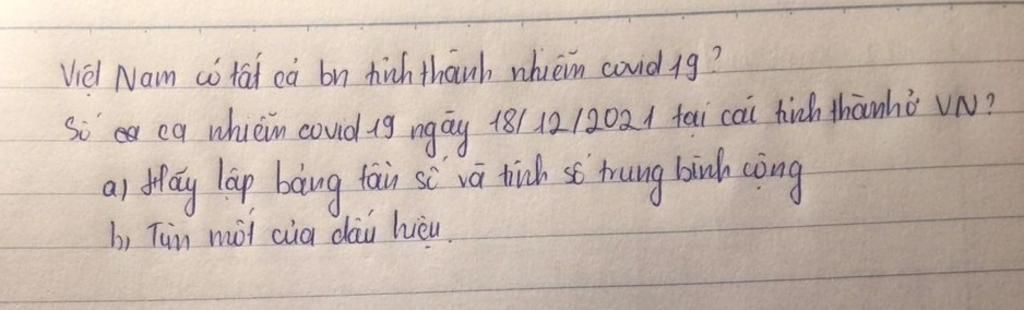 Việt Nam có tất cả bn tỉnh thành nhiễm covid 19?
Số ca nhiễm covid 19 ngày 18/12/2021 tại các tỉnh thành ở VN?
a) Hãy lập bảng tần số và tính số trung bình cộng
b) Tìm mốt của dấu hiệu.